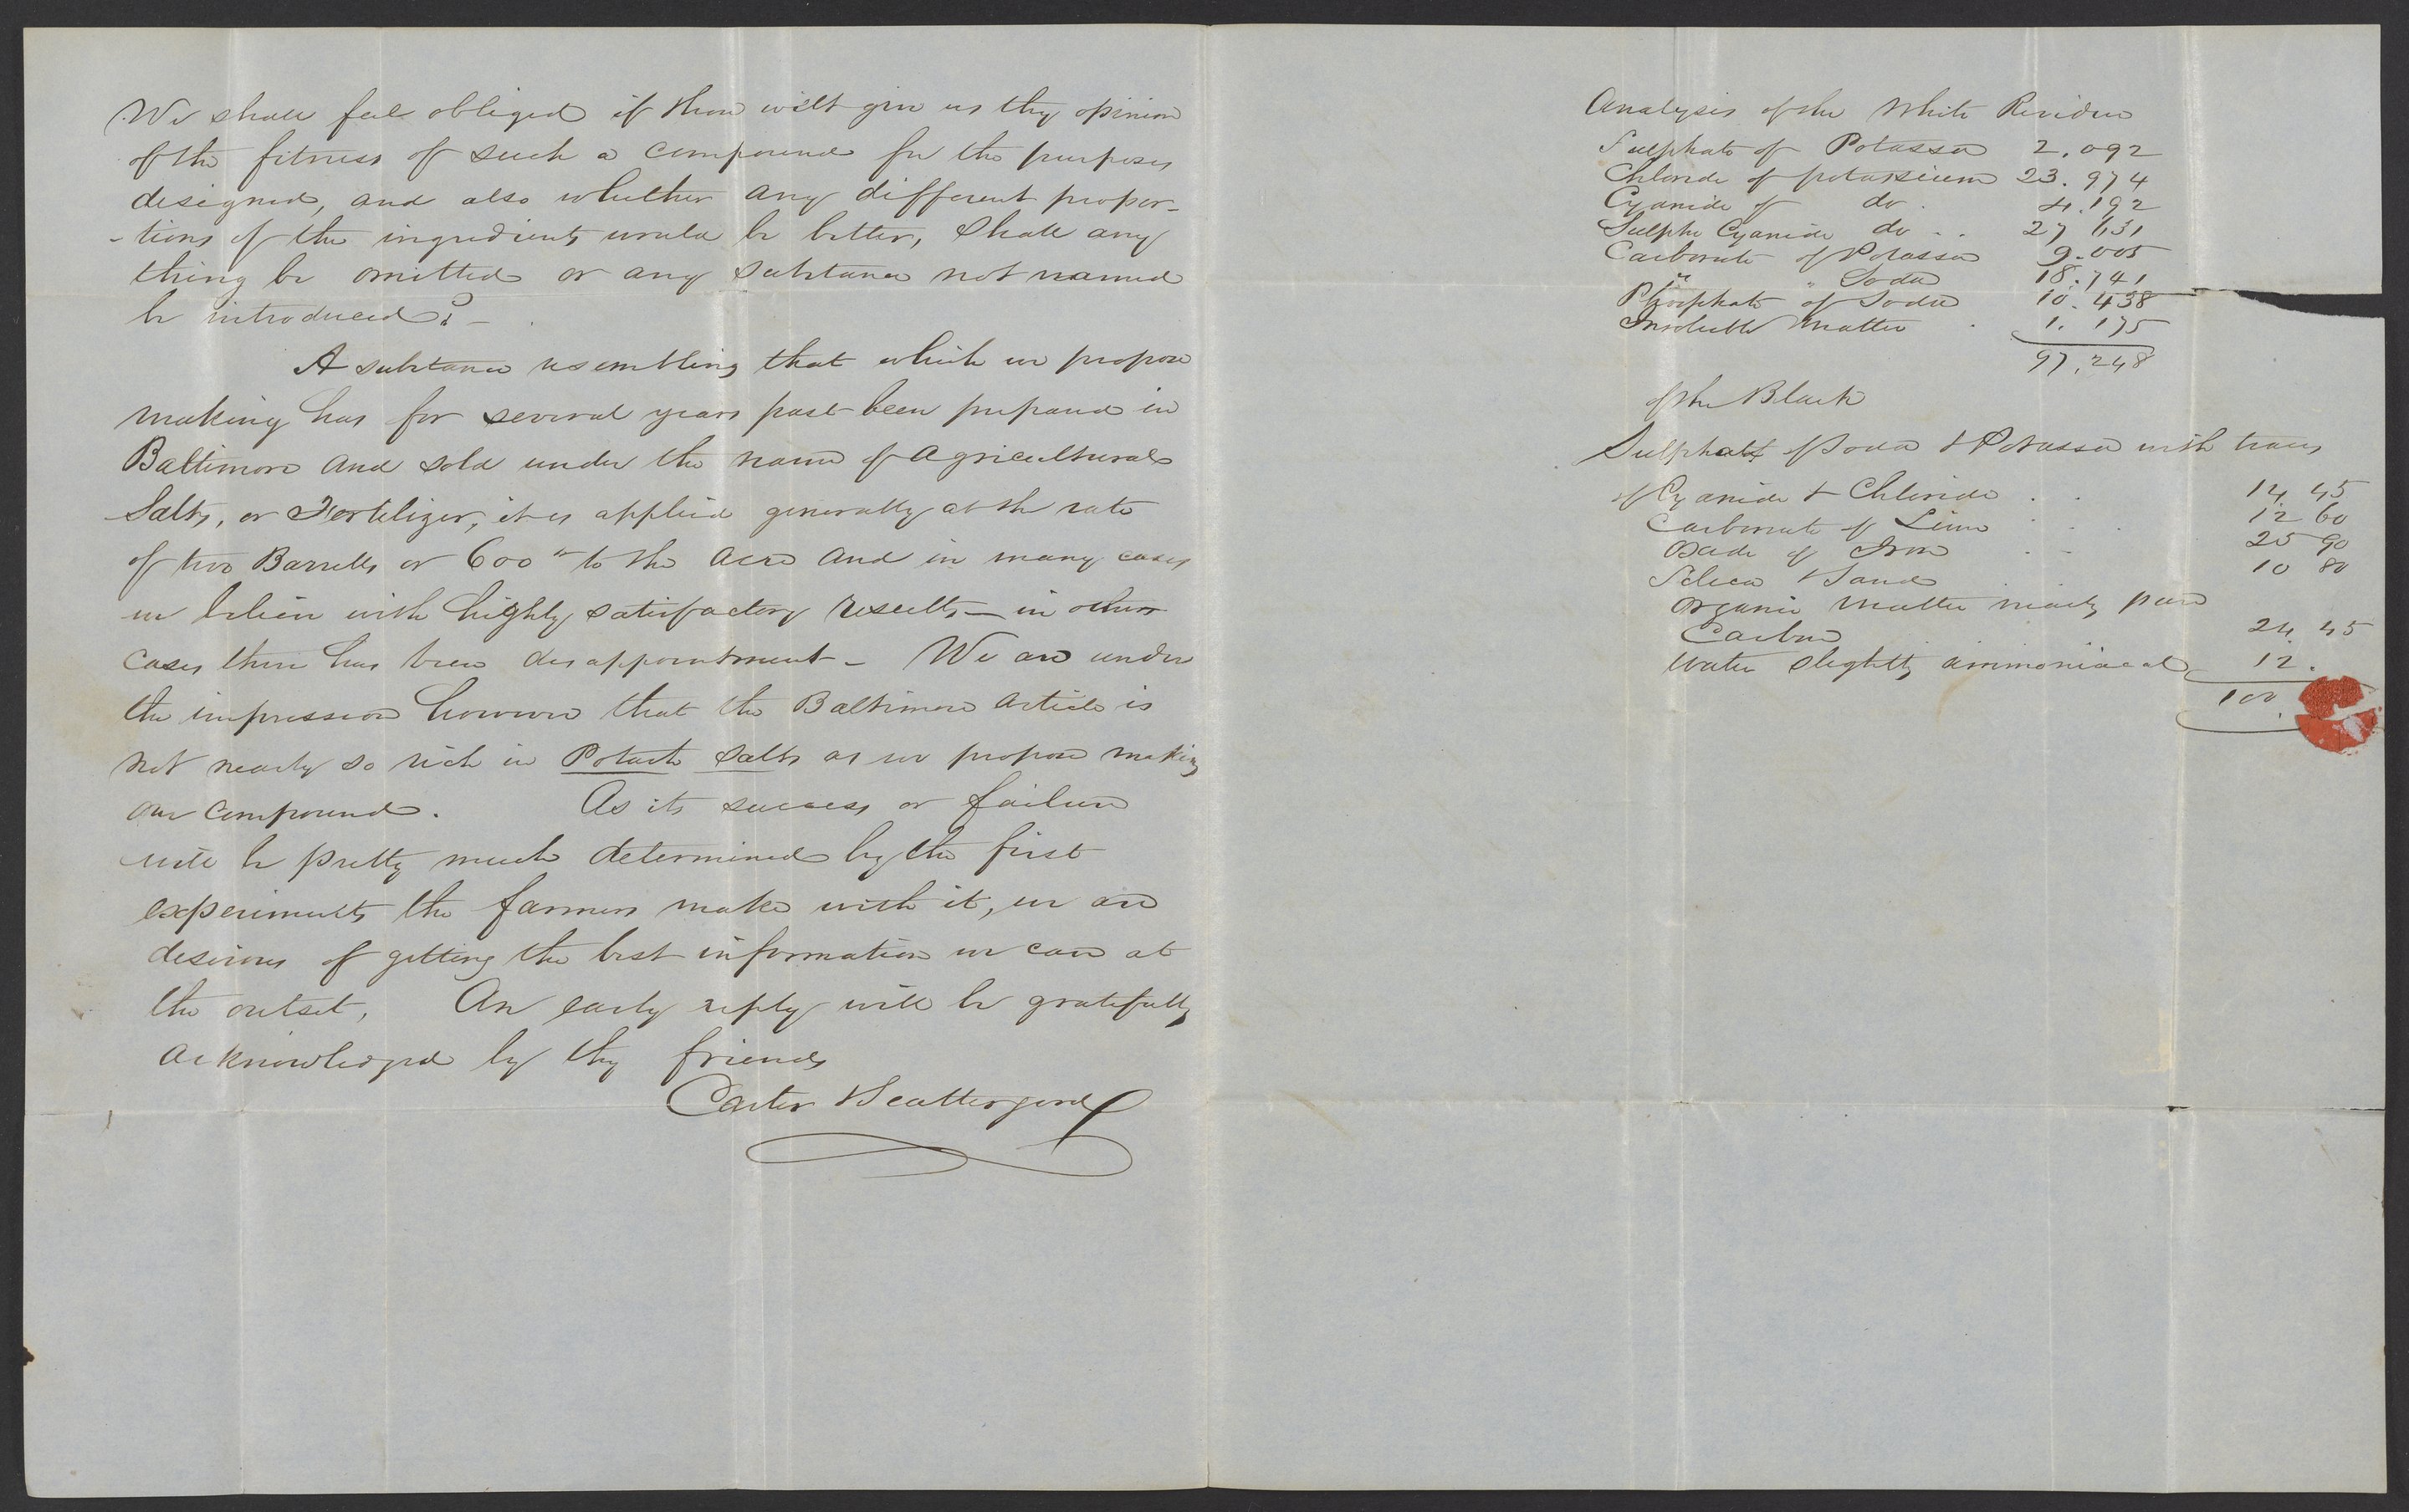 We shall feel obliged if thou wilt give us thy opinion
of the fitness of such a compound for the purposes
designed, and also whether any different propor-
-tions of the ingredients would be better, Shall any
thing be omitted or any substance not named
be introduced? -
A substance resembling that which we propose
making has for several years past been prepared in
Baltimore and sold under the name of Agricultural
Salts, or Fertilizer, it is applied generally at the rate
of two Barrells or 600 lbs to the acre and in many cases
we believe with highly satisfactory results — in other
cases there has been disappointment - We are under
the impression however that the Baltimore article is
not nearly so rich in Potash Salts as we propose making
our compound. As its success or failure
will be pretty much determined by the first
experiments the farmers make with it, we are
desirous of getting the best information we can at
the outset, An early reply will be gratefully
acknowledged by thy friends
Carter & Scattergood
Analysis of the White Residue
Sulphate of Potassa 2.092
Chloride of potassium 23.974
Cyanide of do. 4.192
Sulpho Cyanide do - - 27 631
Carbonate of Potassa 9.005
" " Soda 18.741
Phosphate of Soda 10.438
Insoluble Matter . 1.175
97,248
of the Black
Sulphate of Soda & Potassa with traces
of Cyanide & Chloride . . 14.45
Carbonate of Lime . . . 12 60
Oxide of Iron . - 25 90
Silica & Sand 10 80
Organic Matter nearly pure
Carbon 24.45
Water slightly ammoniacal 12.
100.